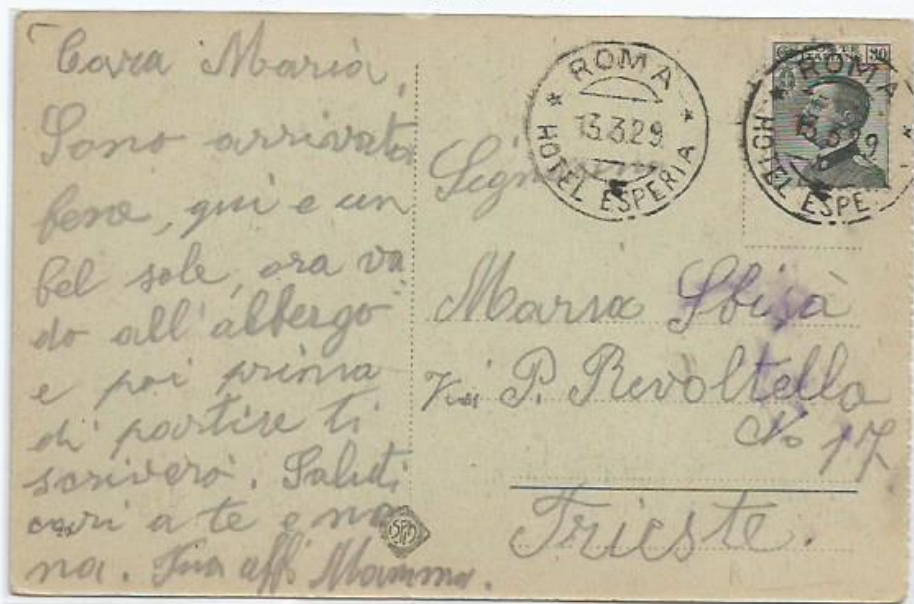 Cara Maria,
Sono arrivata
bene, qui e un
bel sole, ora va
do all'albergo
e poi prima
di partire ti
scriverò. Saluti
cari a te e no
na. Tua affi Mamma.
ROMA
13.3.29.
HOTEL ESPERIA
ROMA
13.3.29
HOTEL ESPE
Maria Sbisà
Via P. Revoltella
No 17
Trieste.